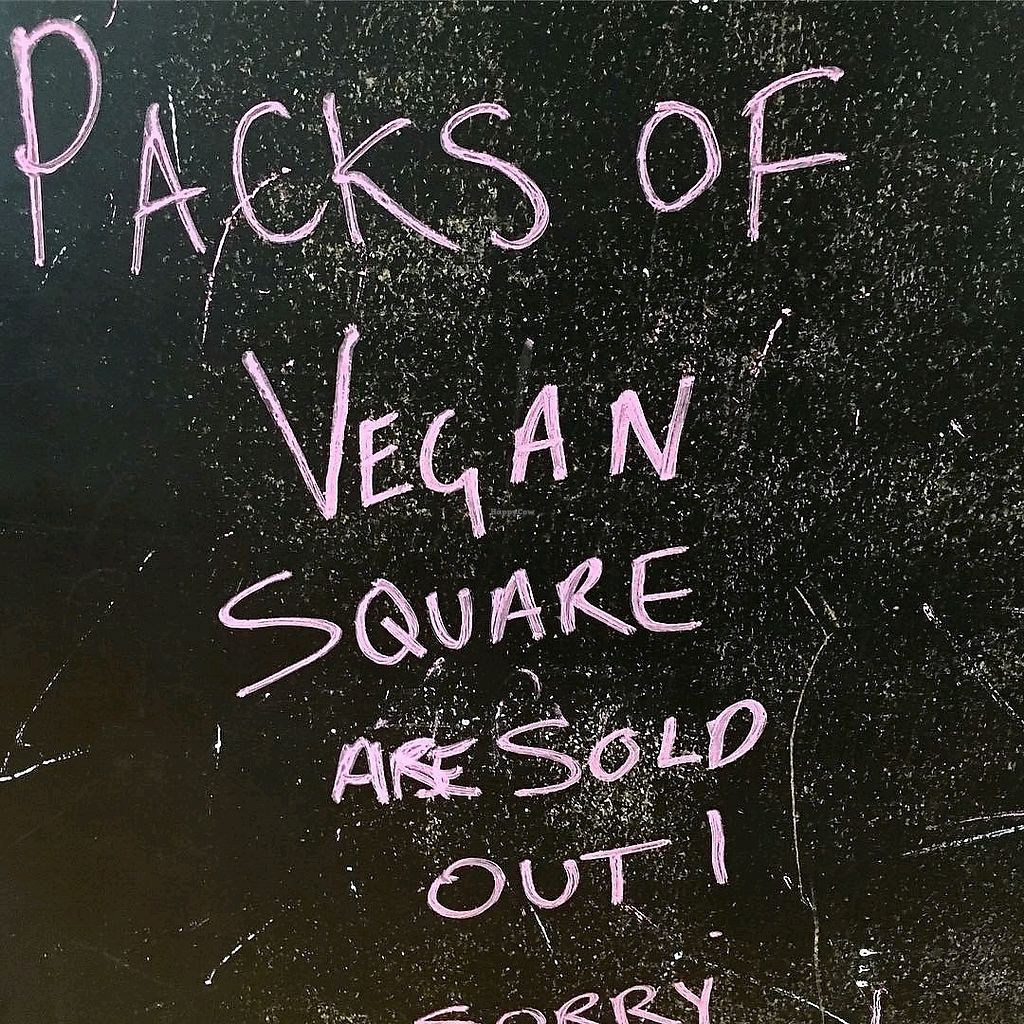 PACKS OF
VEGAN
HappyCow
SQUARE
ARE SOLD
OUT!
SORRY